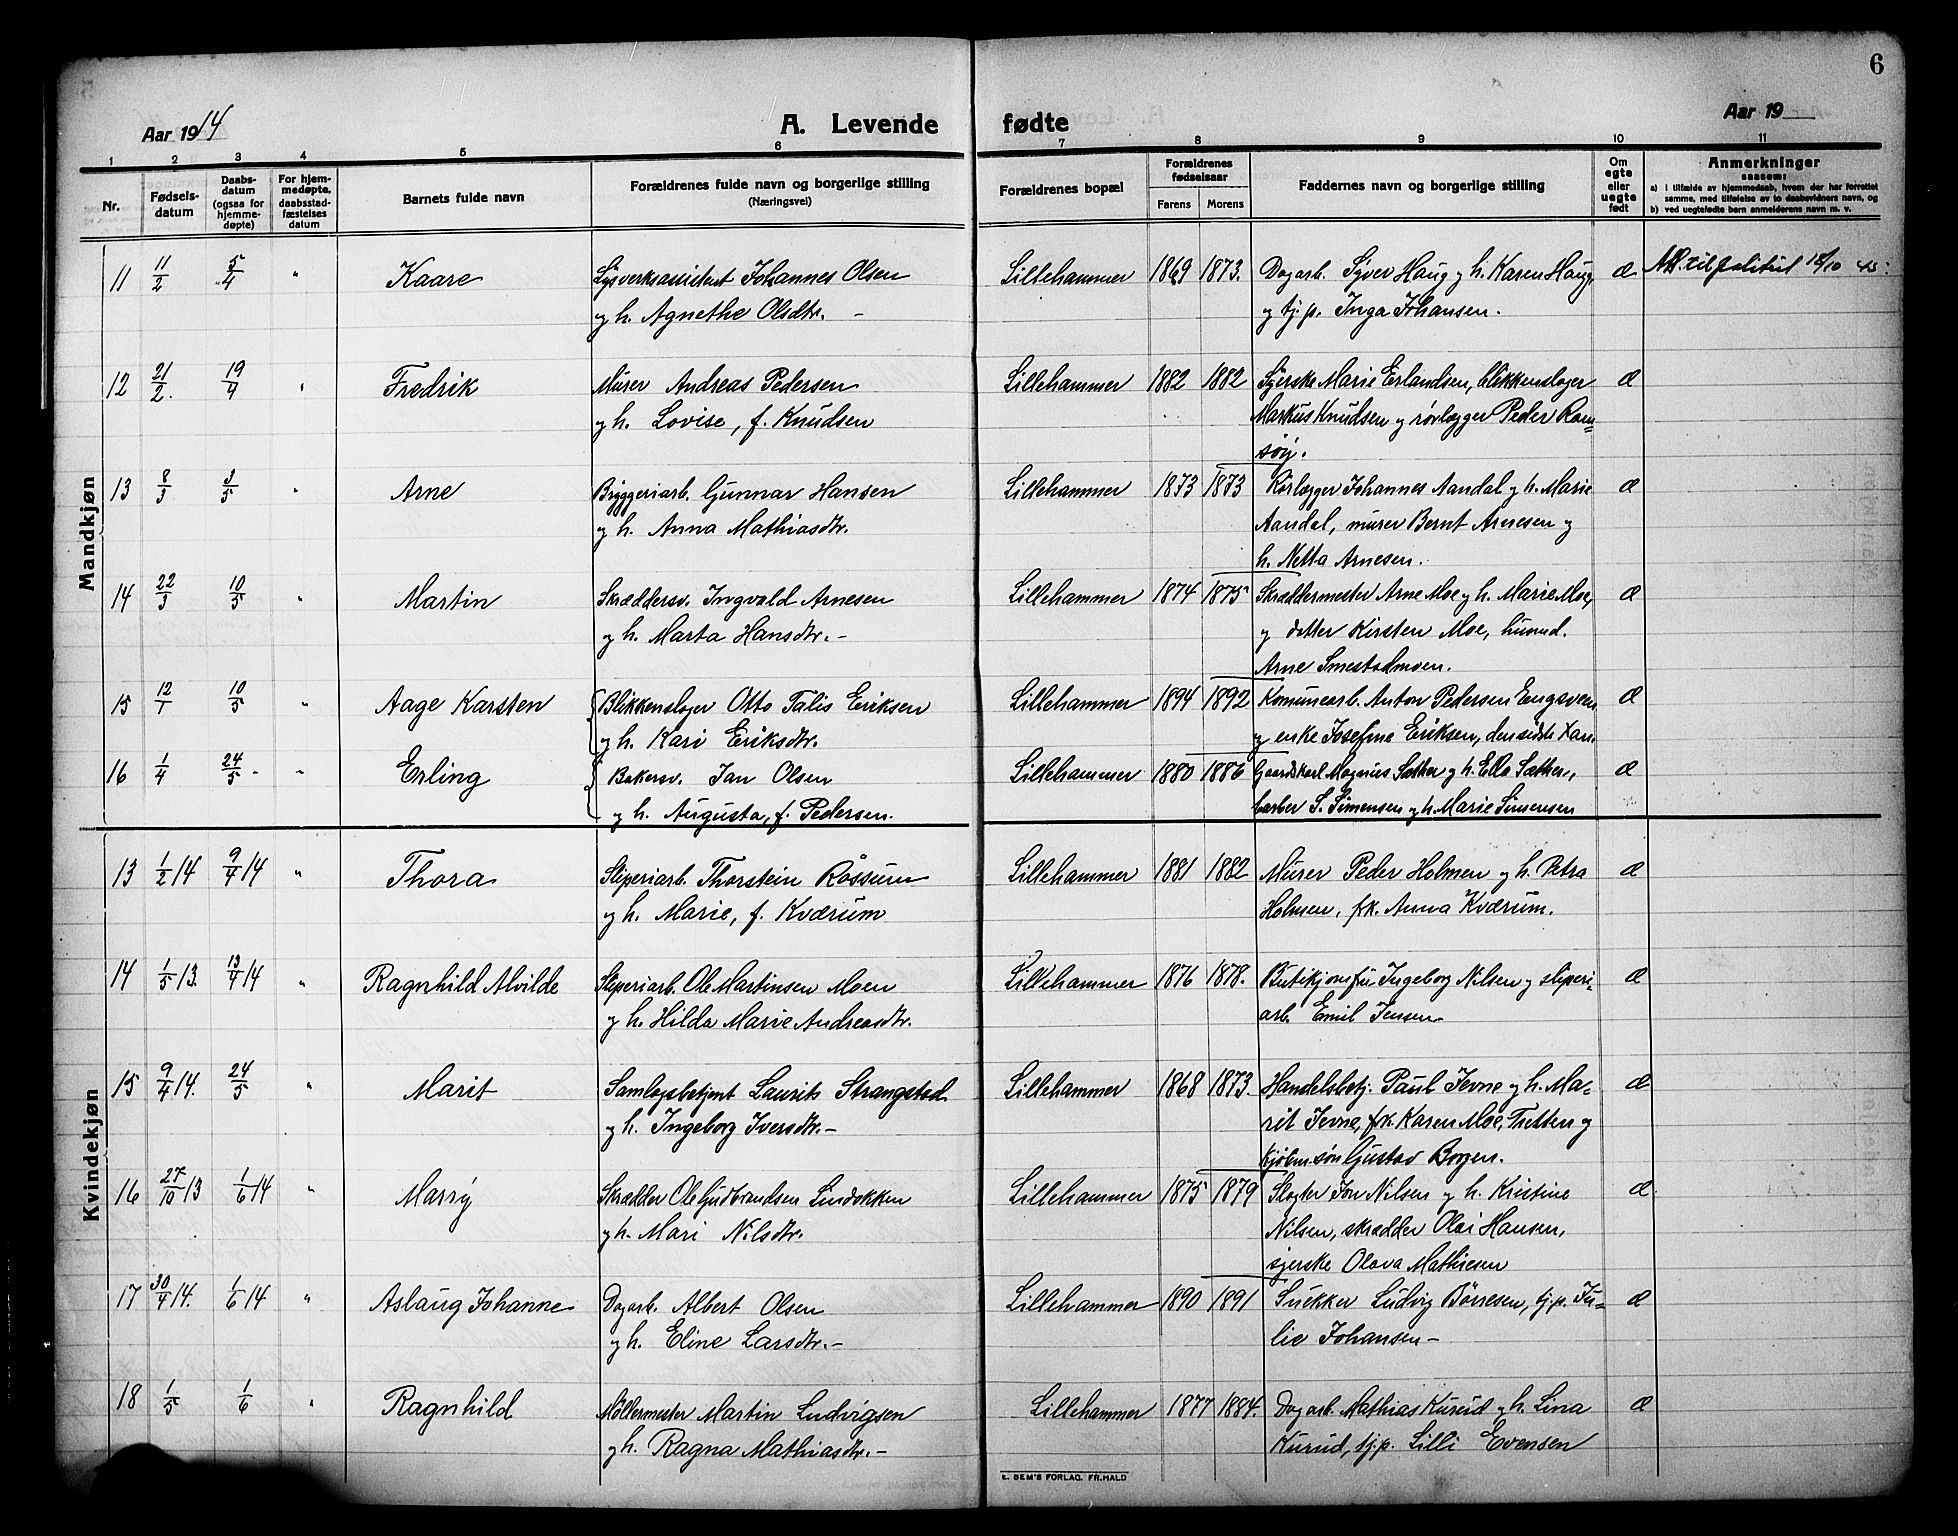 6
Aar 1914
A. Levende fødte
Aar 19
1 2 3 4 5 6 7 8 9 10 11
Nr.
Fødselsdatum
Daabsdatum (ogsaa for hjemmedøpte)
For hjemmedøpte, daabsstadfæstelses datum
Barnets fulde navn
Forældrenes fulde navn og borgerlige stilling
(Næringsvei)
Forældrenes bopæl
Forældrenes fødselsaar
Farens Morens
Faddernes navn og borgerlige stilling
Om egte eller uegte født
Anmerkninger
saasom:
a) i tilfælde av hjemmedaab, hvem der har forrettet samme, med tilføielse av to daabsvidners navn, og
b) ved uegtefødte barn anmelderens navn m. v.
Mandkjøn
11 11/2 5/4 " Kaare Lysverksassistent Johannes Olsen Lillehammer 1869 1873. Dagarb. Syver Haug og h. Karen Haug, æ Att. til politiet 18/10 45.
og h. Agnethe Olsdtr. – og tj.p. Inga Johansen.
12 21/2. 19/4 " Fredrik Murer Andreas Pedersen Lillehammer 1882 1882 Syerske Marie Erlandsen, blikkenslager æ
og h. Lovise, f. Knudsen Markus Knudsen og rørlægger Peder Ram=
søy.
13 8/3 3/5 " Arne Bryggeriarb. Gunnar Hansen Lillehammer 1873 1873 Rørlægger Johannes Aandal og h. Marie æ
og h. Anna Mathiasdtr. Aandal, murer Bernt Arnesen og
h. Netta Arnesen.
14 22/3 10/5 " Martin Skræddersv. Ingvald Arnesen Lillehammer 1874 1875 Skræddermester Arne Moe og h. Marie Moe, æ
og h. Marta Hansdtr. – og datter Kirsten Moe, husmd.
Arne Smestadmoen.
15 12/1 10/5 " Aage Karsten Blikkenslager Otto Talis Eriksen Lillehammer 1894 1892 Komunearb. Anton Pedersen Engsveen æ
og h. Kari Eriksdtr. og enke Josefine Eriksen, den sidste
16 1/4 24/5 - " Erling Bakersv. Jan Olsen Lillehammer 1880 1886 Gaardskarl Magnus Sæther og h. Ella Sæther, æ
og h. Augusta, f. Pedersen. barber S. Simensen og h. Marie Simensen
Kvindekjøn
13 1/2 14 9/4 14 " Thora Sliperiarb. Thorstein Rössum Lillehammer 1881 1882 Murer Peder Holmen og h. Petra æ
og h. Marie, f. Kværum Holmen, frk. Anna Kværum.
14 1/5 13. 13/4 14 " Ragnhild Alvilde Sliperiarb. Ole Martinsen Moen Lillehammer 1876 1878. Butikjomfru Ingeborg Nilsen og sliperi- æ
og h. Hilda Marie Andreasdtr. arb. Emil Jensen
15 9/4 14. 24/5 " Marit Samlagsbetjent Laurits Strangstad Lillehammer 1868 1873. Handelsbetj. Paul Jevne og h. Ma- æ
og h. Ingeborg Iversdtr. – rit Jevne, frk. Karen Moe, Tretten og
kjøbm.søn Gustav Borgen.
16 27/10 13 1/6 14 " Marry Skrædder Ole Gudbrandsen Lindokken Lillehammer 1875 1879 Slagter Jon Nilsen og h. Kristine æ
og h. Mari Nilsdtr. Nilsen, skrædder Olai Hansen,
sjerske Olava Mathiesen
17 30/4 14. 1/6 14 " Aslaug Johanne Dagarb. Albert Olsen Lillehammer 1890 1891 Snekker Ludvig Børresen, tj.p. Ju- æ
og h. Eline Larsdtr. – lie Johansen –
18 1/5 1/6 " Ragnhild Møllermester Martin Ludvigsen Lillehammer 1877 1884. Dagarb. Mathias Kurud og h. Lina æ
og h. Ragna Mathiasdtr. – Kurud, tj.p. Lilli Evensen
E. SEM'S FORLAG. FR.HALD